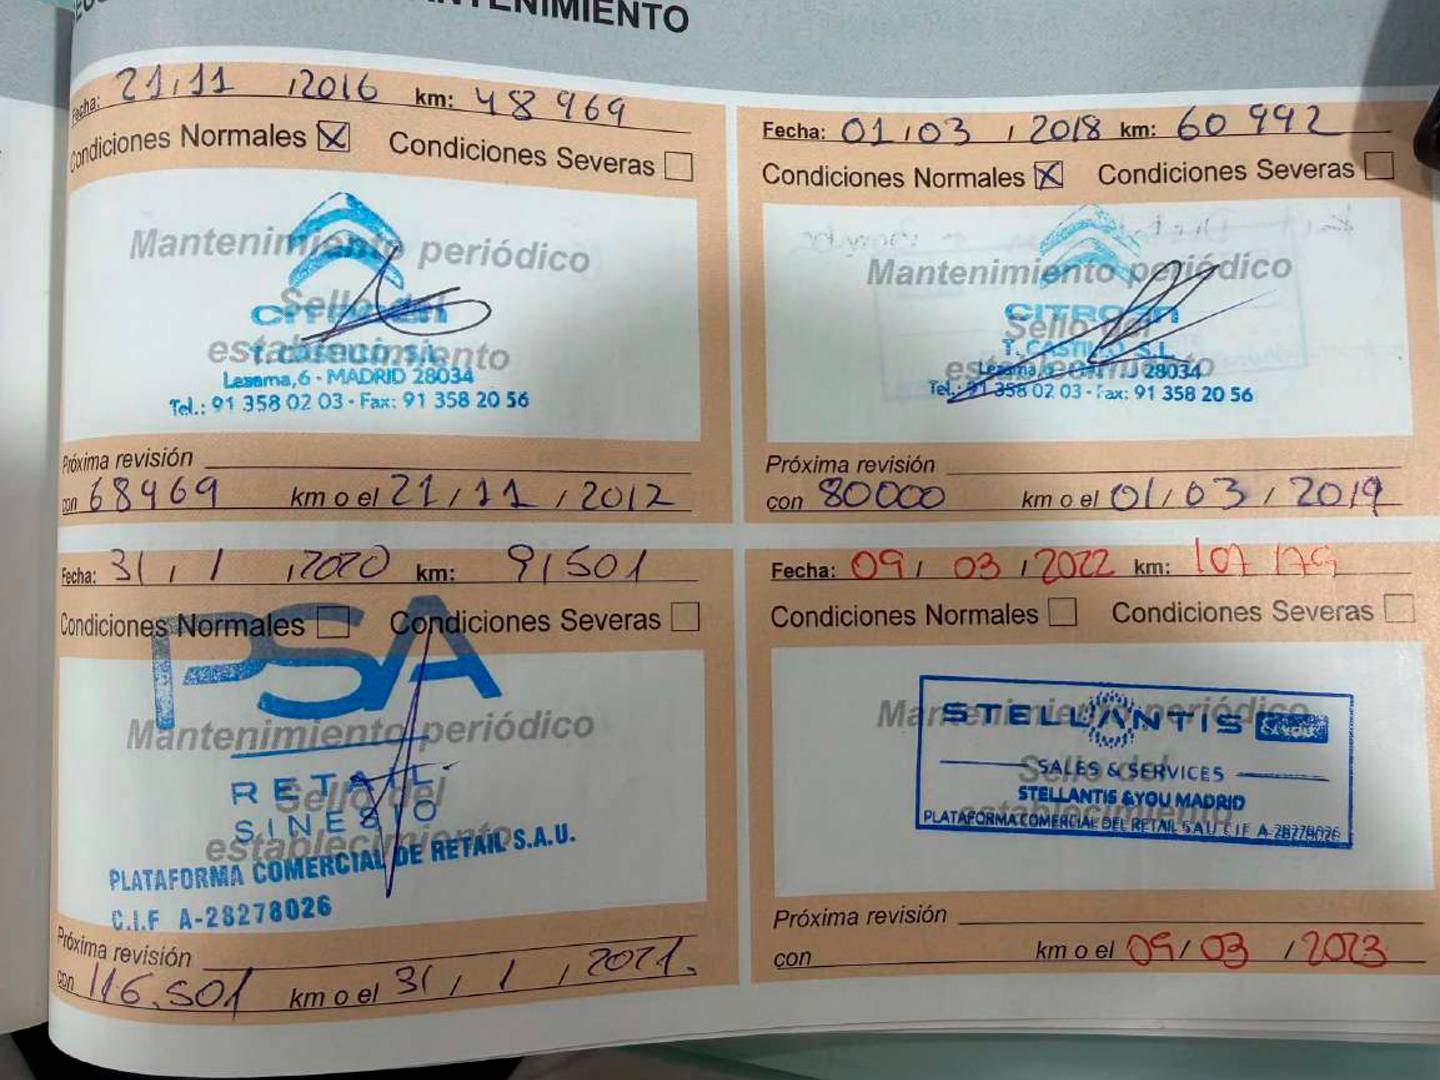 MANTENIMIENTO
Fecha: 21/11/2016 km: 48969
Condiciones Normales ☒ Condiciones Severas ☐
Mantenimiento periódico
Sello del
establecimiento
CITROËN
T. CASTILLO S.L.
Lezama, 6 - MADRID 28034
Tel.: 91 358 02 03 - Fax: 91 358 20 56
Próxima revisión
con 68969 km o el 21/11/2012
Fecha: 01/03/2018 km: 60992
Condiciones Normales ☒ Condiciones Severas ☐
Mantenimiento periódico
Sello del
establecimiento
CITROËN
T. CASTILLO S.L.
Lezama, 28034
Tel.: 91 358 02 03 - Fax: 91 358 20 56
Próxima revisión
con 80000 km o el 01/03/2019
Fecha: 31/1/2020 km: 91501
Condiciones Normales ☐ Condiciones Severas ☐
PSA
Mantenimiento periódico
Sello del
establecimiento
RETAIL
SINESIO
PLATAFORMA COMERCIAL DE RETAIL S.A.U.
C.I.F A-28278026
Próxima revisión
con 116.501 km o el 31/1/2021.
Fecha: 09/03/2022 km: 107179
Condiciones Normales ☐ Condiciones Severas ☐
Mantenimiento periódico
Sello del
establecimiento
STELLANTIS
SALES & SERVICES
STELLANTIS &YOU MADRID
PLATAFORMA COMERCIAL DEL RETAIL SAU CIF A-28278026
Próxima revisión
con km o el 09/03/2023